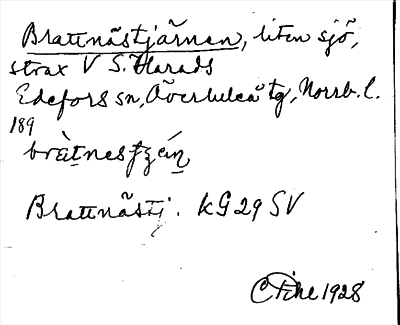 Brattnästjärnan, liten sjö,
strax V S. Harads
Edefors sn, Överluleå tg, Norrb. l.
189
Brattnästj. KG 29 SV
1928